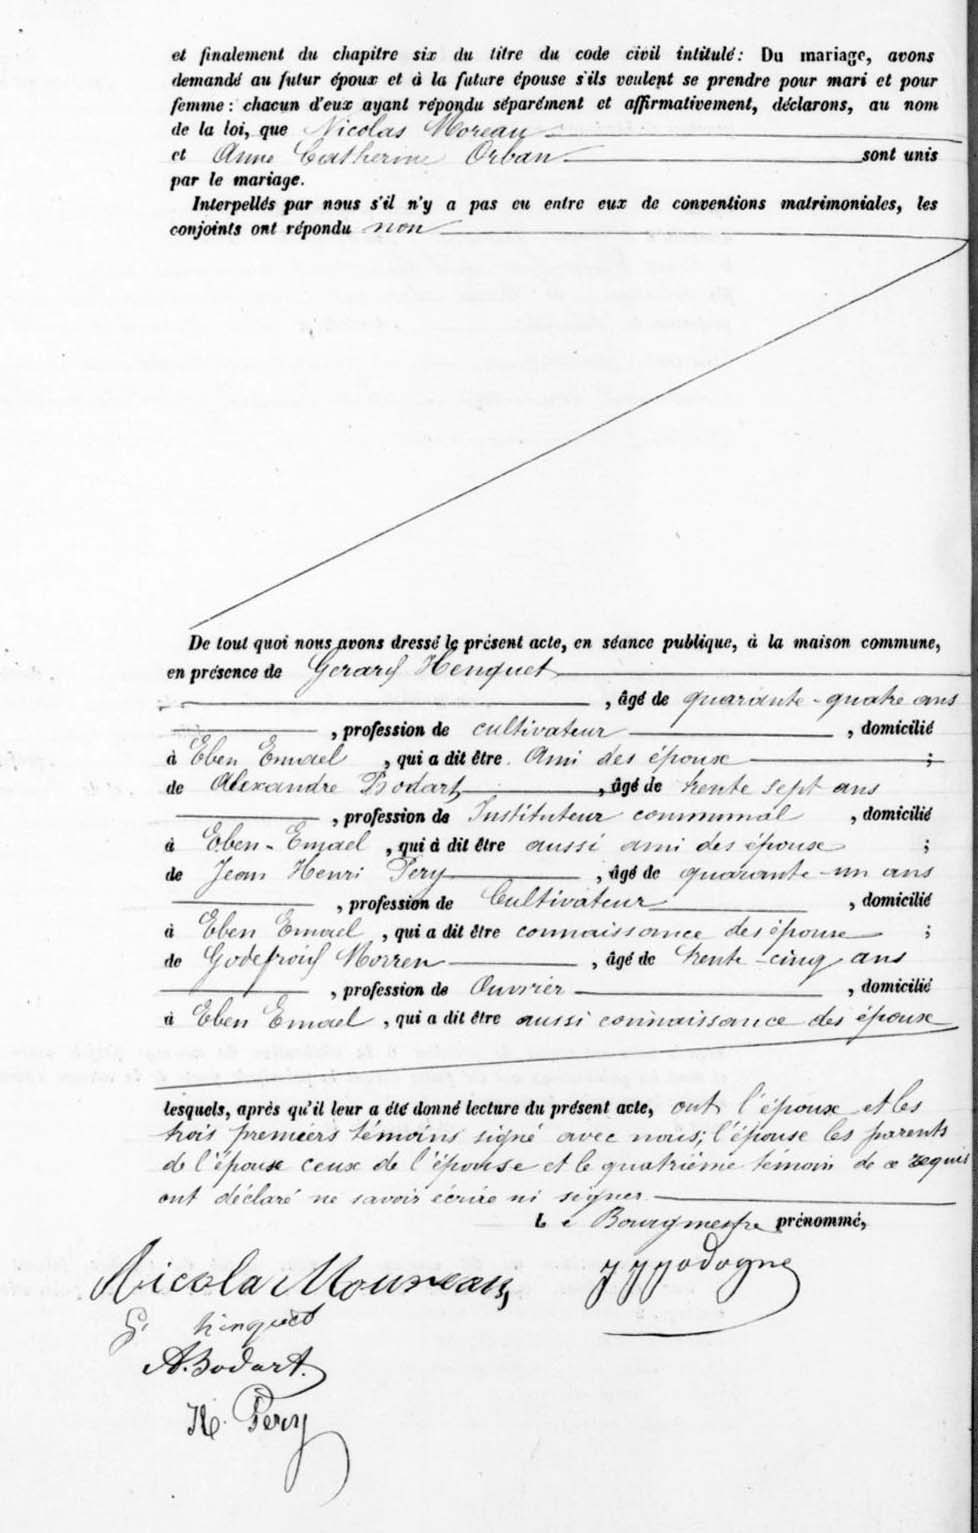 et finalement du chapitre six du titre du code civil intitulé: Du mariage, avons
demandé au futur époux et à la future épouse s'ils veulent se prendre pour mari et pour
femme : chacun d'eux ayant répondu séparément et affirmativement, déclarons, au nom
de la loi, que Nicolas Moreau
et Anne Catherine Orban sont unis
par le mariage.
Interpellés par nous s'il n'y a pas eu entre eux de conventions matrimoniales, les
conjoints ont répondu non
De tout quoi nous avons dressé le présent acte, en séance publique, à la maison commune,
en présence de Gerard Henquet
, âgé de quarante-quatre ans
, profession de cultivateur , domicilié
à Eben Emael , qui a dit être Ami des époux ;
de Alexandre Bodart , âgé de trente sept ans
, profession de Instituteur communal , domicilié
à Eben-Emael , qui à dit être aussi ami des époux ;
de Jean Henri Pery , âgé de quarante-un ans
, profession de Cultivateur , domicilié
à Eben Emael , qui a dit être connaissance des époux ;
de Godefroid Morren , âgé de trente-cinq ans
, profession de Ouvrier , domicilié
à Eben Emael , qui a dit être aussi connaissance des époux
lesquels, après qu'il leur a été donné lecture du présent acte, ont l'époux et les
trois premiers témoins signé avec nous; l'épouse les parents
de l'époux ceux de l'épouse et le quatrième témoin de ce requis
ont déclaré ne savoir écrire ni signer
Le Bourgmestre prénommé,
Nicola Moureau
G. henquet
A. Bodart.
H. Pery